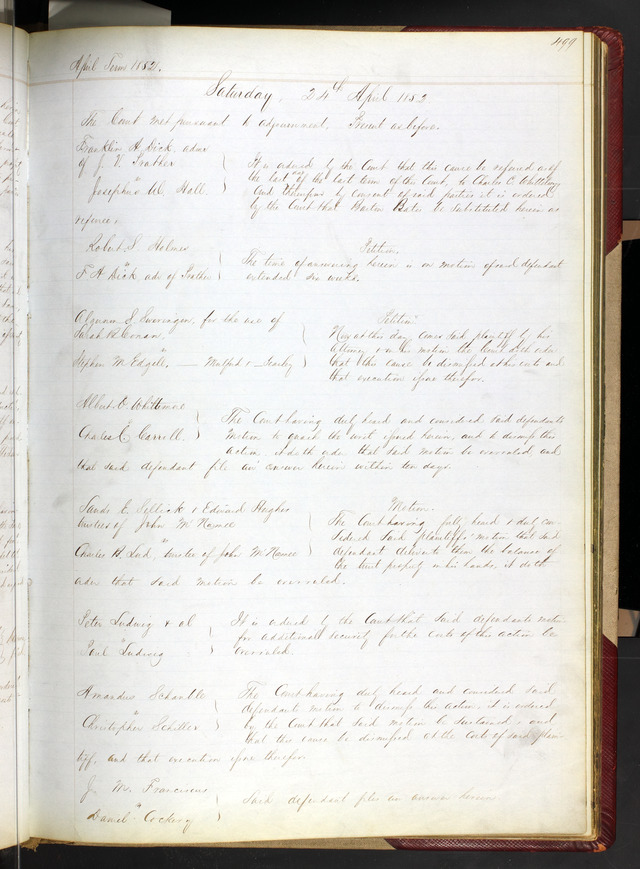 499
April Term 1852.
Saturday, 24th April 1852
The Court met pursuant to adjournment. Present as before.
Franklin A. Dick admr
of J. V. Prather
"
Josephus W. Hall
It is ordered by the Court that this cause be referred as of
the last day of the last term of this Court, to Charles C. Whittlesey
And therefore by consent of said parties it is ordered
by the Court that Barton Bates be substituted herein as
referee.
Robert S. Holmes
"
F. A. Dick adr of Prather
Petition.
The time of answering herein is on motion of said defendant
extended six weeks.
for the use of
Sarah
"
Stephen M. Edgell,
Petition
Now at this day comes said plaintiff by his
attorney & on his motion the Court doth order
that this cause be dismissed at his costs and
that execution issue therefor.
Albert O. Whittemore
"
Charles C. Carroll
The Court having duly heard and considered said defendants
motion to quash the writ issued herein, and to dismiss this
action, doth order that said motion be overruled and
that said defendant file an answer herein within ten days.
& Edward Hughes
trustees of John McNamee
"
Charles H. trustee of John McNamee
Motion.
The Court having fully heard & duly con-
sidered said plaintiffs motion that said
defendant deliver to them the balance of
the trust property in his hands, it doth
order that said motion be overruled.
Peter Ludwig & al
"
Paul Ludwig
It is ordered by the Court that said defendants motion
for additional security for the costs of this action be
overruled.
Amandus Schantle
"
Christopher Schiller
The Court having duly heard and considered said
defendants motion to dismiss this action, it is ordered
by the Court that said motion be sustained & and
that this cause be dismissed at the costs of said plain-
tiff, and that execution issue therefor.
J. M. Franciscus
"
Daniel
Said defendant files an answer herein